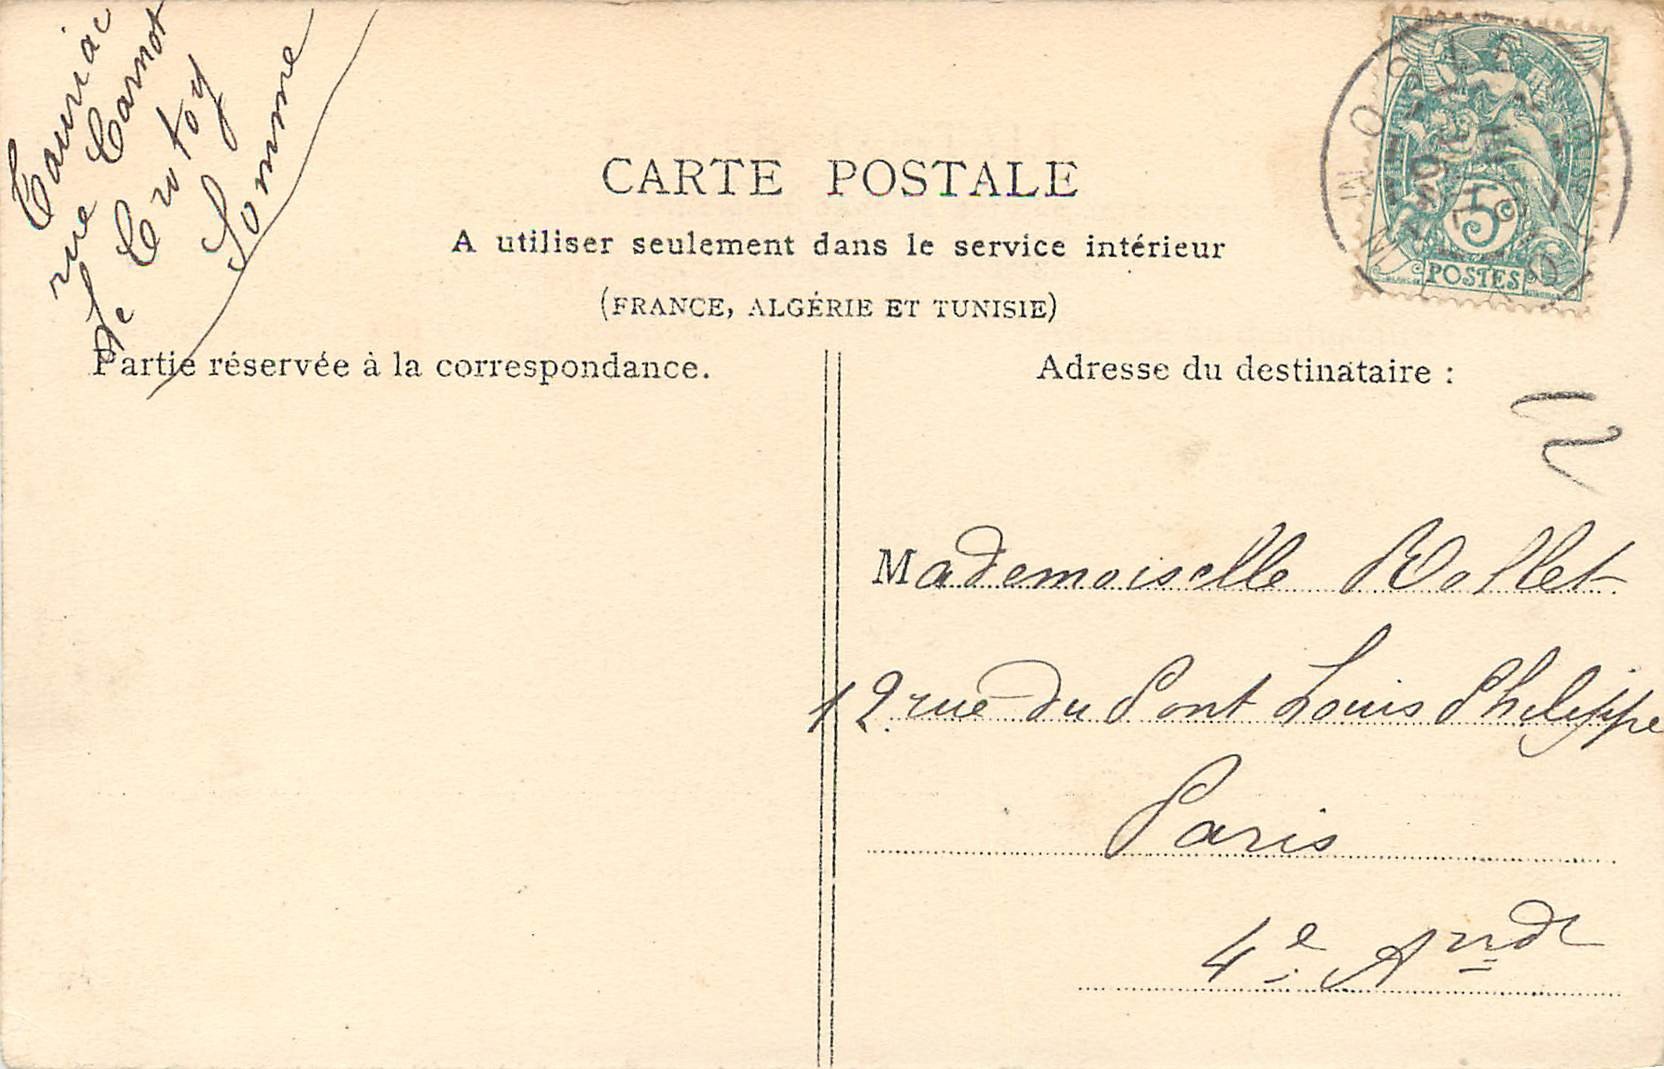 Cauriac
rue Carnot
Le Crotoy
Somme
CARTE POSTALE
A utiliser seulement dans le service intérieur
(FRANCE, ALGÉRIE ET TUNISIE)
Partie réservée à la correspondance.
Adresse du destinataire :
5c
POSTES
12
Mademoiselle Rollet
12 rue du Pont Louis Philippe
Paris
4e Arrdt